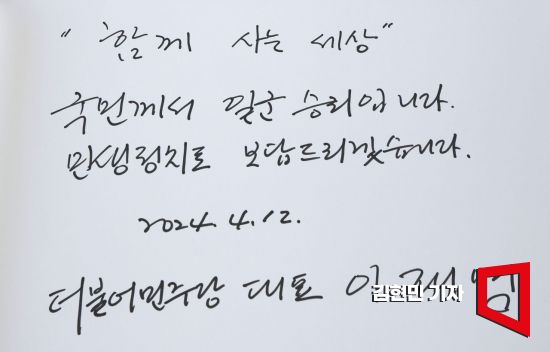 "함께 사는 세상"
국민께서 일군 승리입니다.
민생정치로 보답드리겠습니다.
2024. 4. 12.
더불어민주당 대표 이재명
김현민 기자